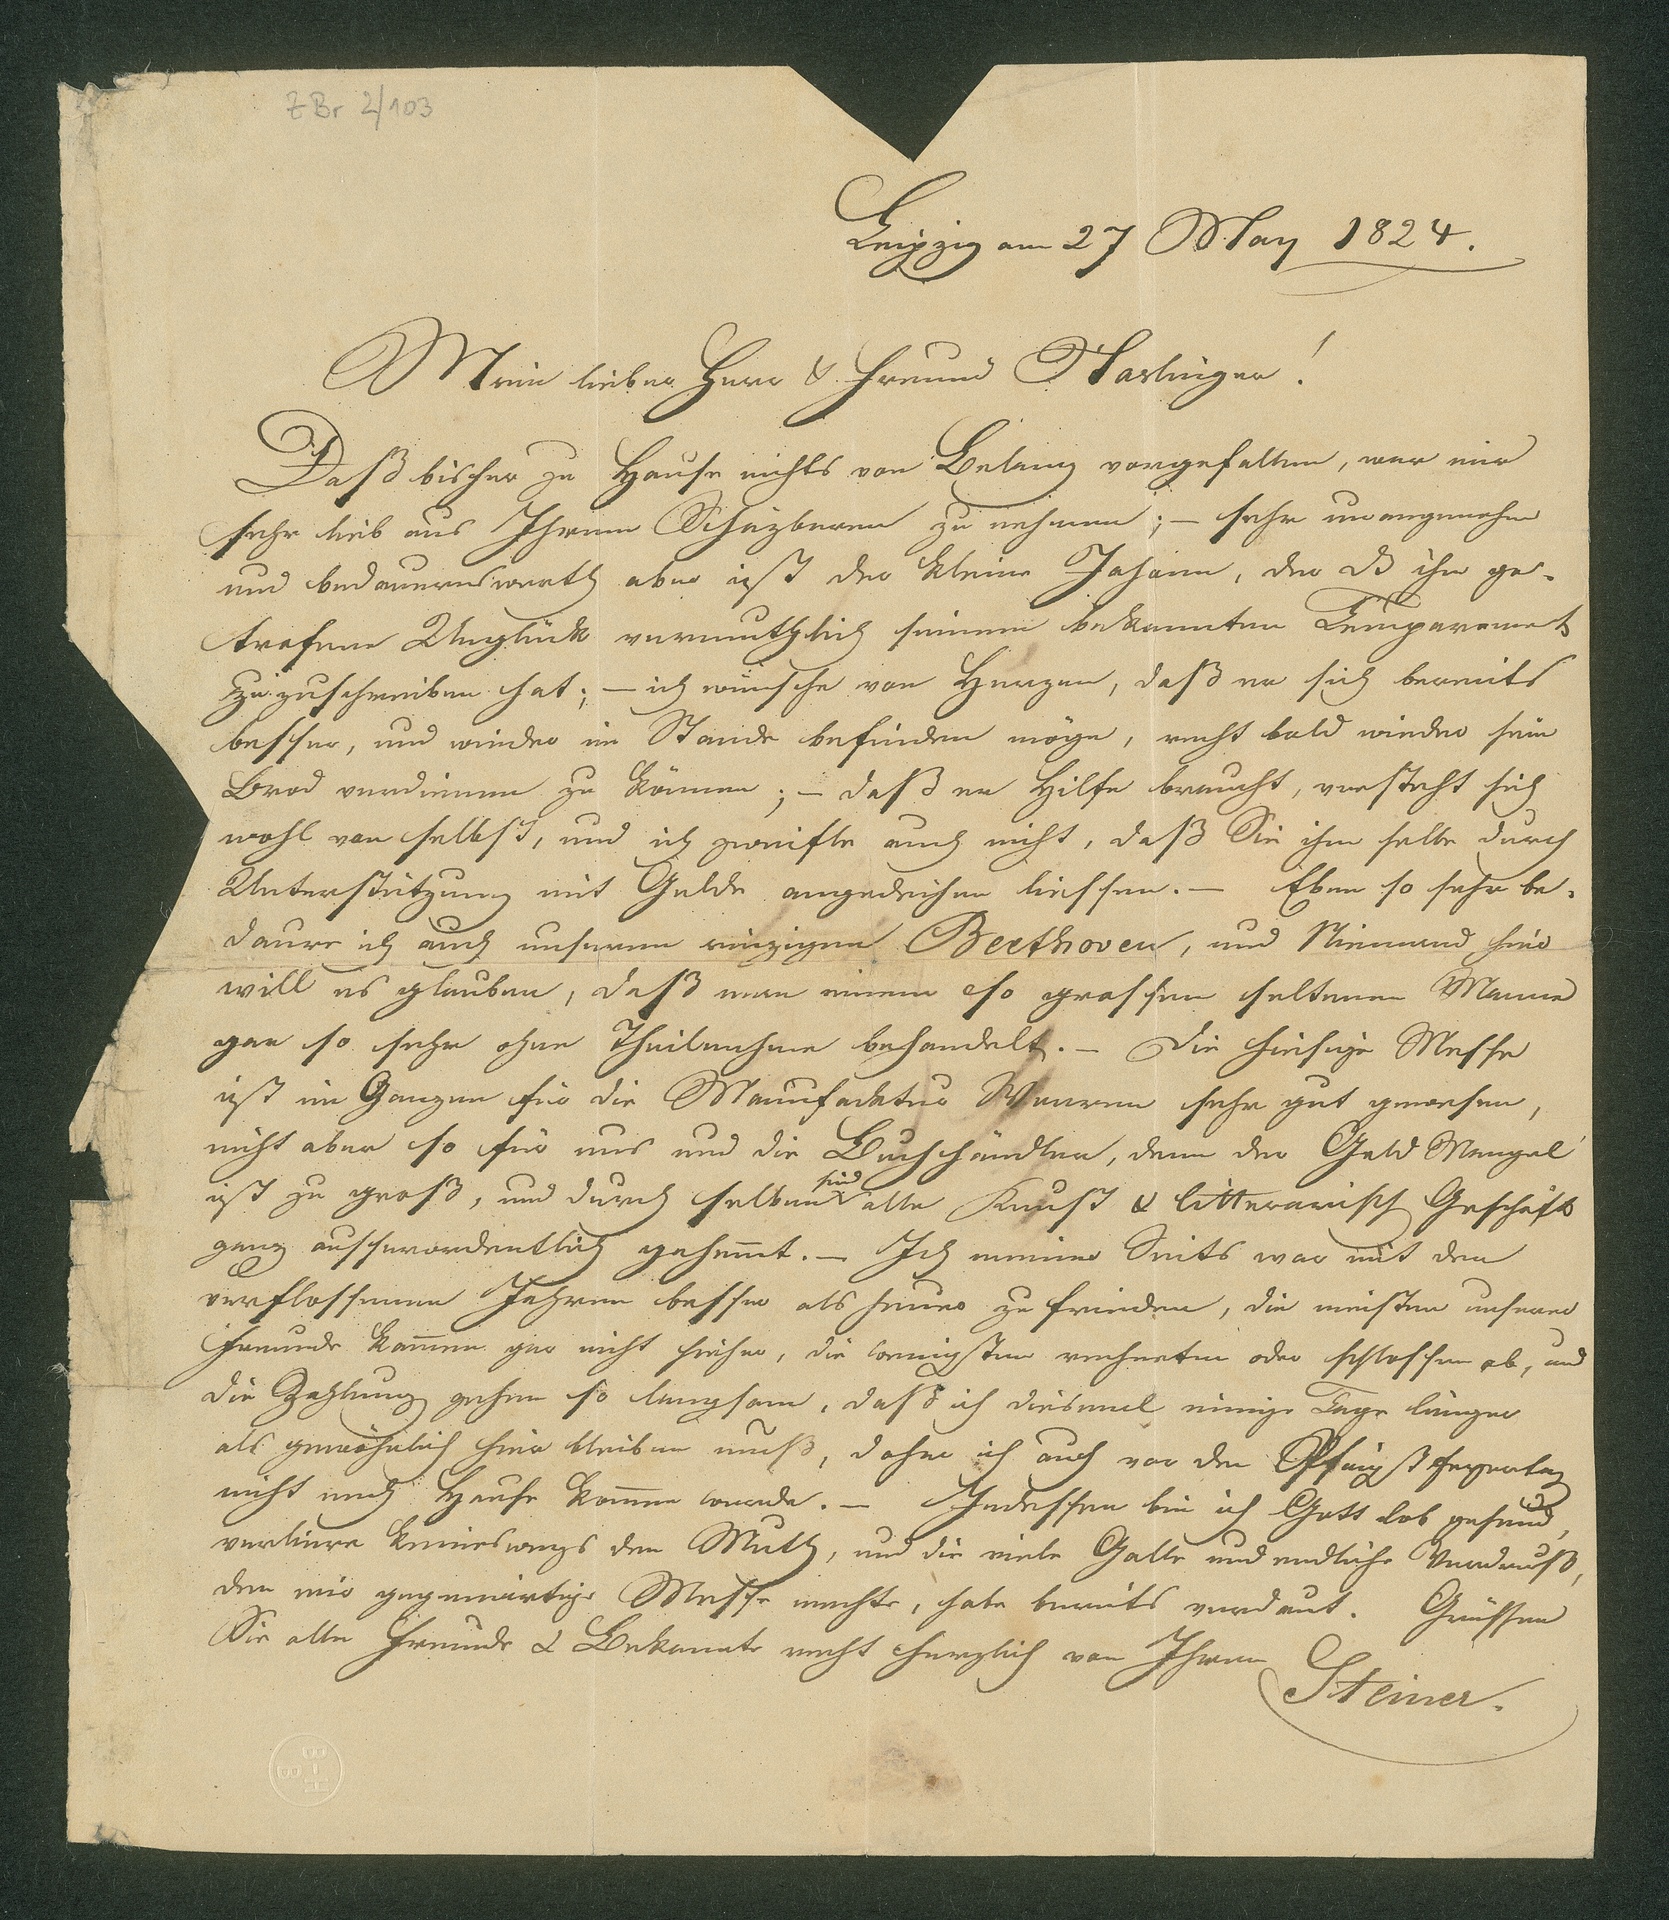 Z Br 2/103
Leipzig am 27 May 1824.
Mein lieber Herr & Freund Haslinger!
Daß bisher zu Hause nichts von Belang vorgefallen, war mir
sehr lieb aus Ihrem Schäzbaren zu nehmen; – sehr unangenehm
und bedauernswerth aber ist der kleine Johann, der das ihn ge-
trofene Unglück vermuthlich seinem bekannten Temparament
zuzuschreiben hat; – ich wünsche von Herzen, daß er sich bereits
besser, und wieder im Stande befinden möge, recht bald wieder sein
Brod verdienen zu können; – daß er Hilfe braucht, versteht sich
wohl von selbst, und ich zweifle auch nicht, daß Sie ihm selbe durch
Unterstützung mit Gelde angedeihen liessen. – Eben so sehr be-
daure ich auch unseren einzigen Beethoven, und Niemand hier
will es glauben, daß man einem so grossen seltenen Manne
gar so sehr ohne Theilnahme behandelt. – Die hiesige Messe
ist im Ganzen für die Manufacktur Waaren sehr gut gewesen,
nicht aber so für uns und die Buchhändler, denn der Geld Mangel
ist zu groß, und durch selben sind alle Kunst & litterarisch Geschäfte
ganz ausserordentlich gehemmt. – Ich meiner Seits war mit den
verflossenen Jahren besser als heuer zu frieden, die meisten unserer
Freunde kammen gar nicht hieher, die wenigsten rechneten oder schlossen ab, und
die Zahlung gehen so langsam, daß ich diesmal einige Tage länger
als gewöhnlich hier bleiben muß, daher ich auch vor den Pfingstfeyertag
nicht nach Hause kommen werde. – Indessen bin ich Gott lob gesund,
verliere keineswegs den Muth, und die viele Galle und endliche Verdruß,
den mir gegenwärtige Messe machte, habe bereits verdaut. Grüssen
Sie alle Freunde & Bekannte recht herzlich von Ihrem
Steiner.